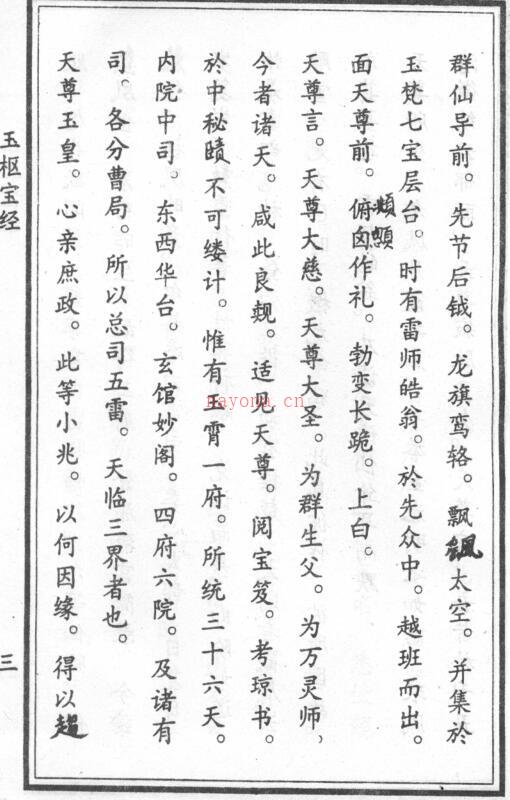 群仙导前。先节后钺。龙旗鸾辂。飘飖太空。并集於
玉梵七宝层台。时有雷师皓翁。於先众中。越班而出。
面天尊前。俯囟作礼。勃变长跪。上白。
天尊言。天尊大慈。天尊大圣。为群生父。为万灵师、
今者诸天。咸此良觌。适见天尊。阅宝笈。考琼书。
於中秘赜不可缕计。惟有玉霄一府。所统三十六天。
内院中司。东西华台。玄馆妙阁。四府六院。及诸有
司。各分曹局。所以总司五雷。天临三界者也。
天尊玉皇。心亲庶政。此等小兆。以何因缘。得以趨
玉枢宝经
三
nayona.cn